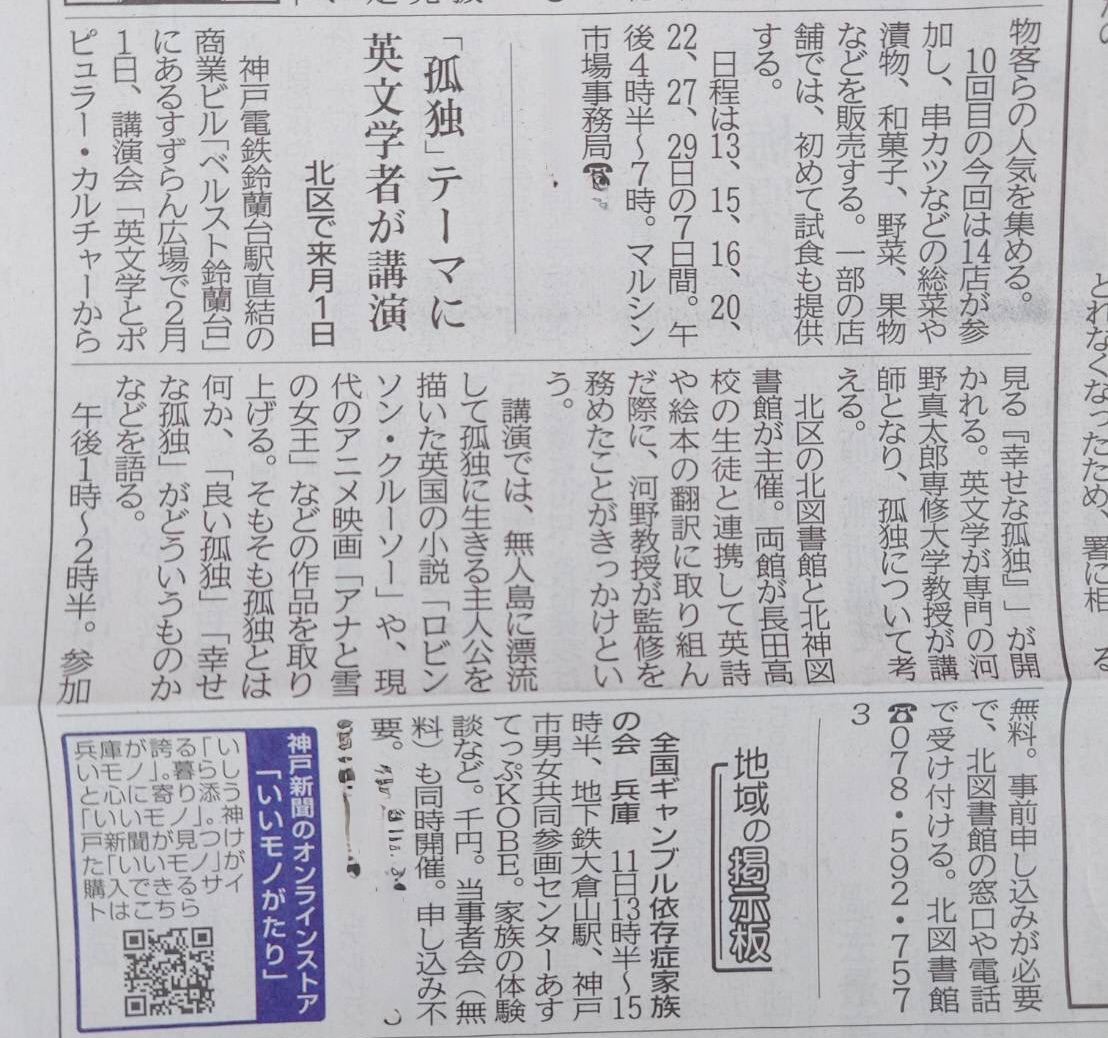 物客らの人気を集める。
10回目の今回は14店が参
加し、串カツなどの総菜や
漬物、和菓子、野菜、果物
などを販売する。一部の店
舗では、初めて試食も提供
する。
日程は13、15、16、20、
22、27、29日の7日間。午
後4時半～7時。マルシン
市場事務局☎
「孤独」テーマに
英文学者が講演
北区で来月1日
神戸電鉄鈴蘭台駅直結の
商業ビル「ベルスト鈴蘭台」
にあるすずらん広場で2月
1日、講演会「英文学とポ
ピュラー・カルチャーから
見る『幸せな孤独』」が開
かれる。英文学が専門の河
野真太郎専修大学教授が講
師となり、孤独について考
える。
北区の北図書館と北神図
書館が主催。両館が長田高
校の生徒と連携して英詩
や絵本の翻訳に取り組ん
だ際に、河野教授が監修を
務めたことがきっかけとい
う。
講演では、無人島に漂流
して孤独に生きる主人公を
描いた英国の小説「ロビン
ソン・クルーソー」や、現
代のアニメ映画「アナと雪
の女王」などの作品を取り
上げる。そもそも孤独とは
何か、「良い孤独」「幸せ
な孤独」がどういうものか
などを語る。
午後1時～2時半。参加
無料。事前申し込みが必要
で、北図書館の窓口や電話
で受け付ける。北図書館
☎078・592・757
3
地域の掲示板
全国ギャンブル依存症家族
の会 兵庫 11日13時半～15
時半、地下鉄大倉山駅、神戸
市男女共同参画センターあす
てっぷKOBE。家族の体験
談など。千円。当事者会（無
料）も同時開催。申し込み不
要。
神戸新聞のオンラインストア
「いいモノがたり」
とれなくなったため、署に相